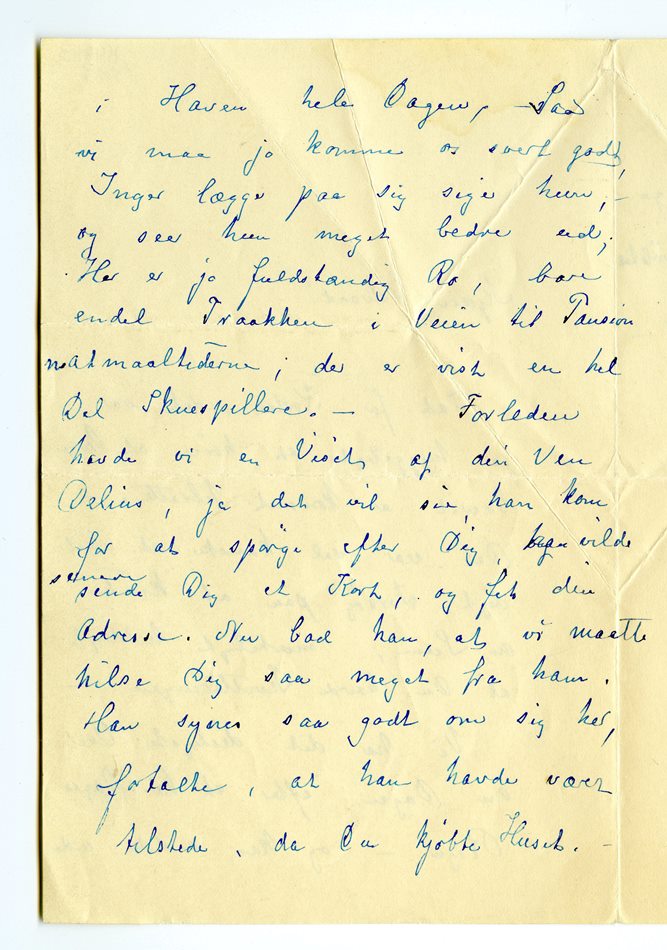 i Haven hele Dagen, – Saa
vi maa jo komme os svert godt,
Inger lægge paa sig sige hun, –
og seer hun meget bedre ud,
Her er jo fuldstændig Ro, bare
endel Traakken i Veien til Pansion
atmaaltiderne; der er vist en hel
Del Skuespillere. – Forleden
havde vi en Visit af din Ven
Delius, ja det vil sie, han kom
for at spörge efter Dig, vilde
senere
sende Dig et Kort, og fik din
Adresse. Nu bad han, at vi maatte
hilse Dig saa meget fra ham.
Han synes saa godt om sig her,
fortalte, at han havde været
tilstede, da Du kjøbte Huset. –